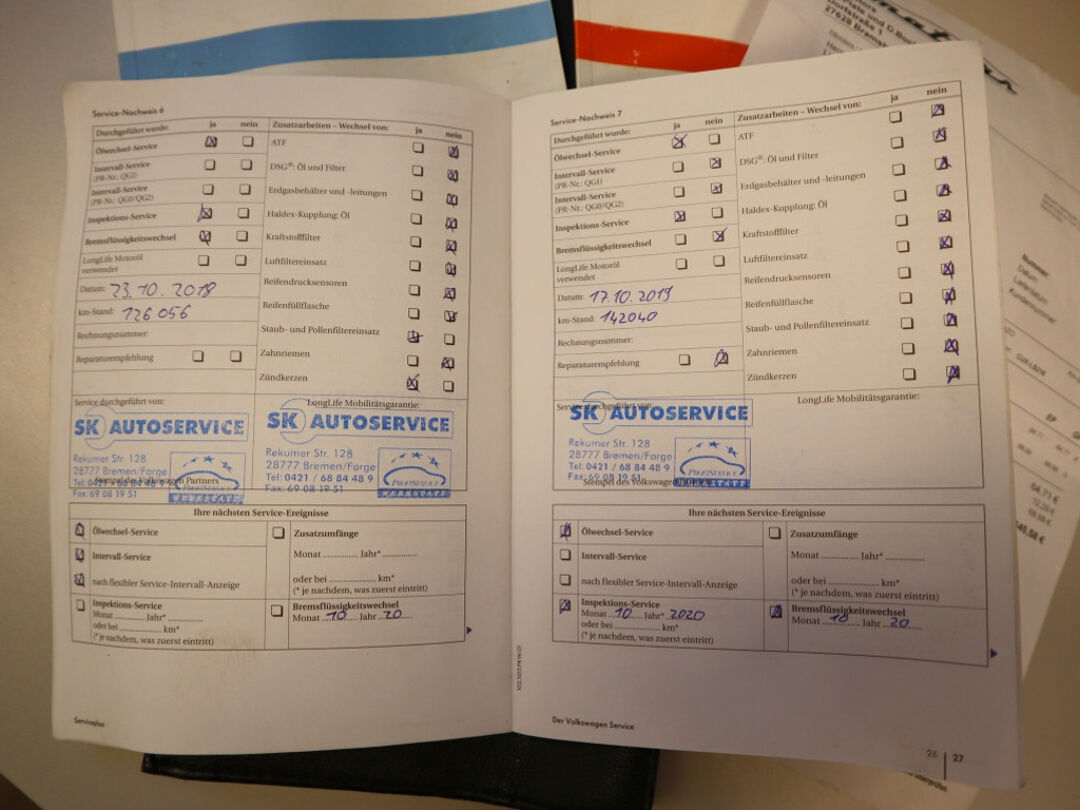 Service-Nachweis 6
Durchgeführt wurde: ja nein
Ölwechsel-Service
Intervall-Service
(PR-Nr.: QG1)
Intervall-Service
(PR-Nr.: QG0/QG2)
Inspektions-Service
Bremsflüssigkeitswechsel
LongLife Motoröl
verwendet
Datum: 23.10.2018
km-Stand: 126 056
Rechnungsnummer:
Reparaturempfehlung
Zusatzarbeiten – Wechsel von: ja nein
ATF
DSG®: Öl und Filter
Erdgasbehälter und -leitungen
Haldex-Kupplung: Öl
Kraftstofffilter
Luftfiltereinsatz
Reifendrucksensoren
Reifenfüllflasche
Staub- und Pollenfiltereinsatz
Zahnriemen
Zündkerzen
Service durchgeführt von:
SK AUTOSERVICE
Rekumer Str. 128
28777 Bremen/Farge
Tel: 0421 / 68 84 48 9
Fax: 69 08 19 51
PROFISERVICE
WERKSTATT
Stempel des Volkswagen Partners
LongLife Mobilitätsgarantie:
SK AUTOSERVICE
Rekumer Str. 128
28777 Bremen/Farge
Tel: 0421 / 68 84 48 9
Fax: 69 08 19 51
PROFISERVICE
WERKSTATT
Ihre nächsten Service-Ereignisse
Ölwechsel-Service
Intervall-Service
nach flexibler Service-Intervall-Anzeige
Inspektions-Service
Monat ............ Jahr* ............
oder bei ............ km*
(* je nachdem, was zuerst eintritt)
Zusatzumfänge
Monat ............ Jahr* ............
oder bei ............ km*
(* je nachdem, was zuerst eintritt)
Bremsflüssigkeitswechsel
Monat 10 Jahr 20
Serviceplan
Service-Nachweis 7
Durchgeführt wurde: ja nein
Ölwechsel-Service
Intervall-Service
(PR-Nr.: QG1)
Intervall-Service
(PR-Nr.: QG0/QG2)
Inspektions-Service
Bremsflüssigkeitswechsel
LongLife Motoröl
verwendet
Datum: 17.10.2019
km-Stand: 142040
Rechnungsnummer:
Reparaturempfehlung
Zusatzarbeiten – Wechsel von: ja nein
ATF
DSG®: Öl und Filter
Erdgasbehälter und -leitungen
Haldex-Kupplung: Öl
Kraftstofffilter
Luftfiltereinsatz
Reifendrucksensoren
Reifenfüllflasche
Staub- und Pollenfiltereinsatz
Zahnriemen
Zündkerzen
Service durchgeführt von:
SK AUTOSERVICE
Rekumer Str. 128
28777 Bremen/Farge
Tel: 0421 / 68 84 48 9
Fax: 69 08 19 51
PROFISERVICE
WERKSTATT
Stempel des Volkswagen
LongLife Mobilitätsgarantie:
Ihre nächsten Service-Ereignisse
Ölwechsel-Service
Intervall-Service
nach flexibler Service-Intervall-Anzeige
Inspektions-Service
Monat 10 Jahr* 2020
oder bei ............ km*
(* je nachdem, was zuerst eintritt)
Zusatzumfänge
Monat ............ Jahr* ............
oder bei ............ km*
(* je nachdem, was zuerst eintritt)
Bremsflüssigkeitswechsel
Monat 10 Jahr 20
Der Volkswagen Service
26 | 27
Dorfstraße 1
Nummer:
Datum:
Lieferdatum:
Kundennummer:
64,71 €